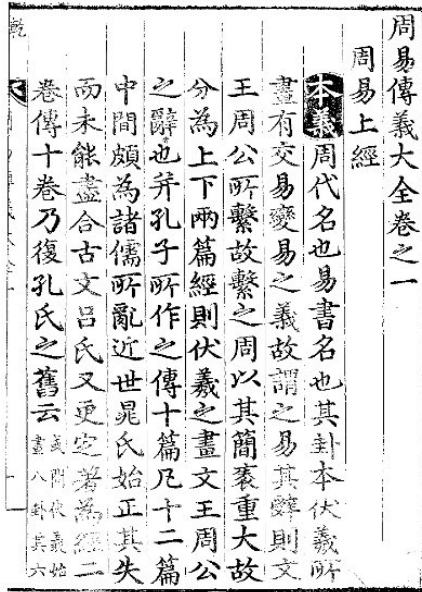 周易傳義大全卷之一
周易上經
本義周代名也易書名也其卦本伏羲所
畫有交易變易之義故謂之易其辭則文
王周公所繫故繫之周以其簡袠重大故
分為上下兩篇經則伏羲之畫文王周公
之辭也并孔子所作之傳十篇凡十二篇
中間頗為諸儒所亂近世晁氏始正其失
而未能盡合古文呂氏又更定著為經二
卷傳十卷乃復孔氏之舊云或問伏羲始
畫八卦其六
乾